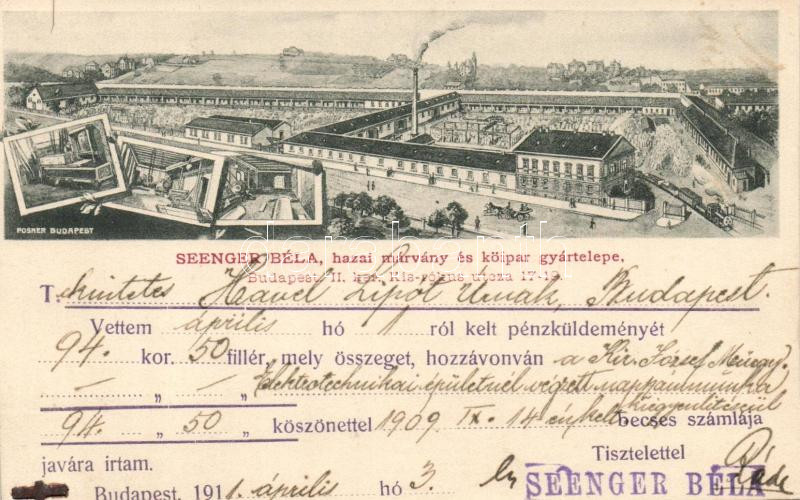 POSNER BUDAPEST
SEENGER BÉLA, hazai márvány és kőipar gyártelepe,
Budapest, II. ker. Kis-rókus utcza 17-19.
T. ekintetes Havel Lipót Úrnak, Budapest.
Vettem április hó 1 ról kelt pénzküldeményét
94. kor. 50 fillér, mely összeget, hozzávonván a Kir. József Műegy.
— " — " Elektrotechnikai épületnél végzett
94. " 50 köszönettel 1909 IX. 14 én kelt becses számlája kiegyenlítéséül
javára irtam. Tisztelettel
Budapest, 191 1. április hó 3. én SEENGER BÉLA